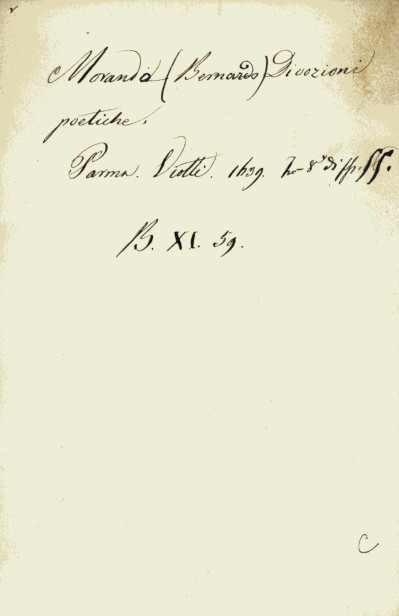 Morandi (Bernardo) Divozioni
poetiche.
Parma. Viotti. 1639. In 8° di pp.
B. XI. 59.
C